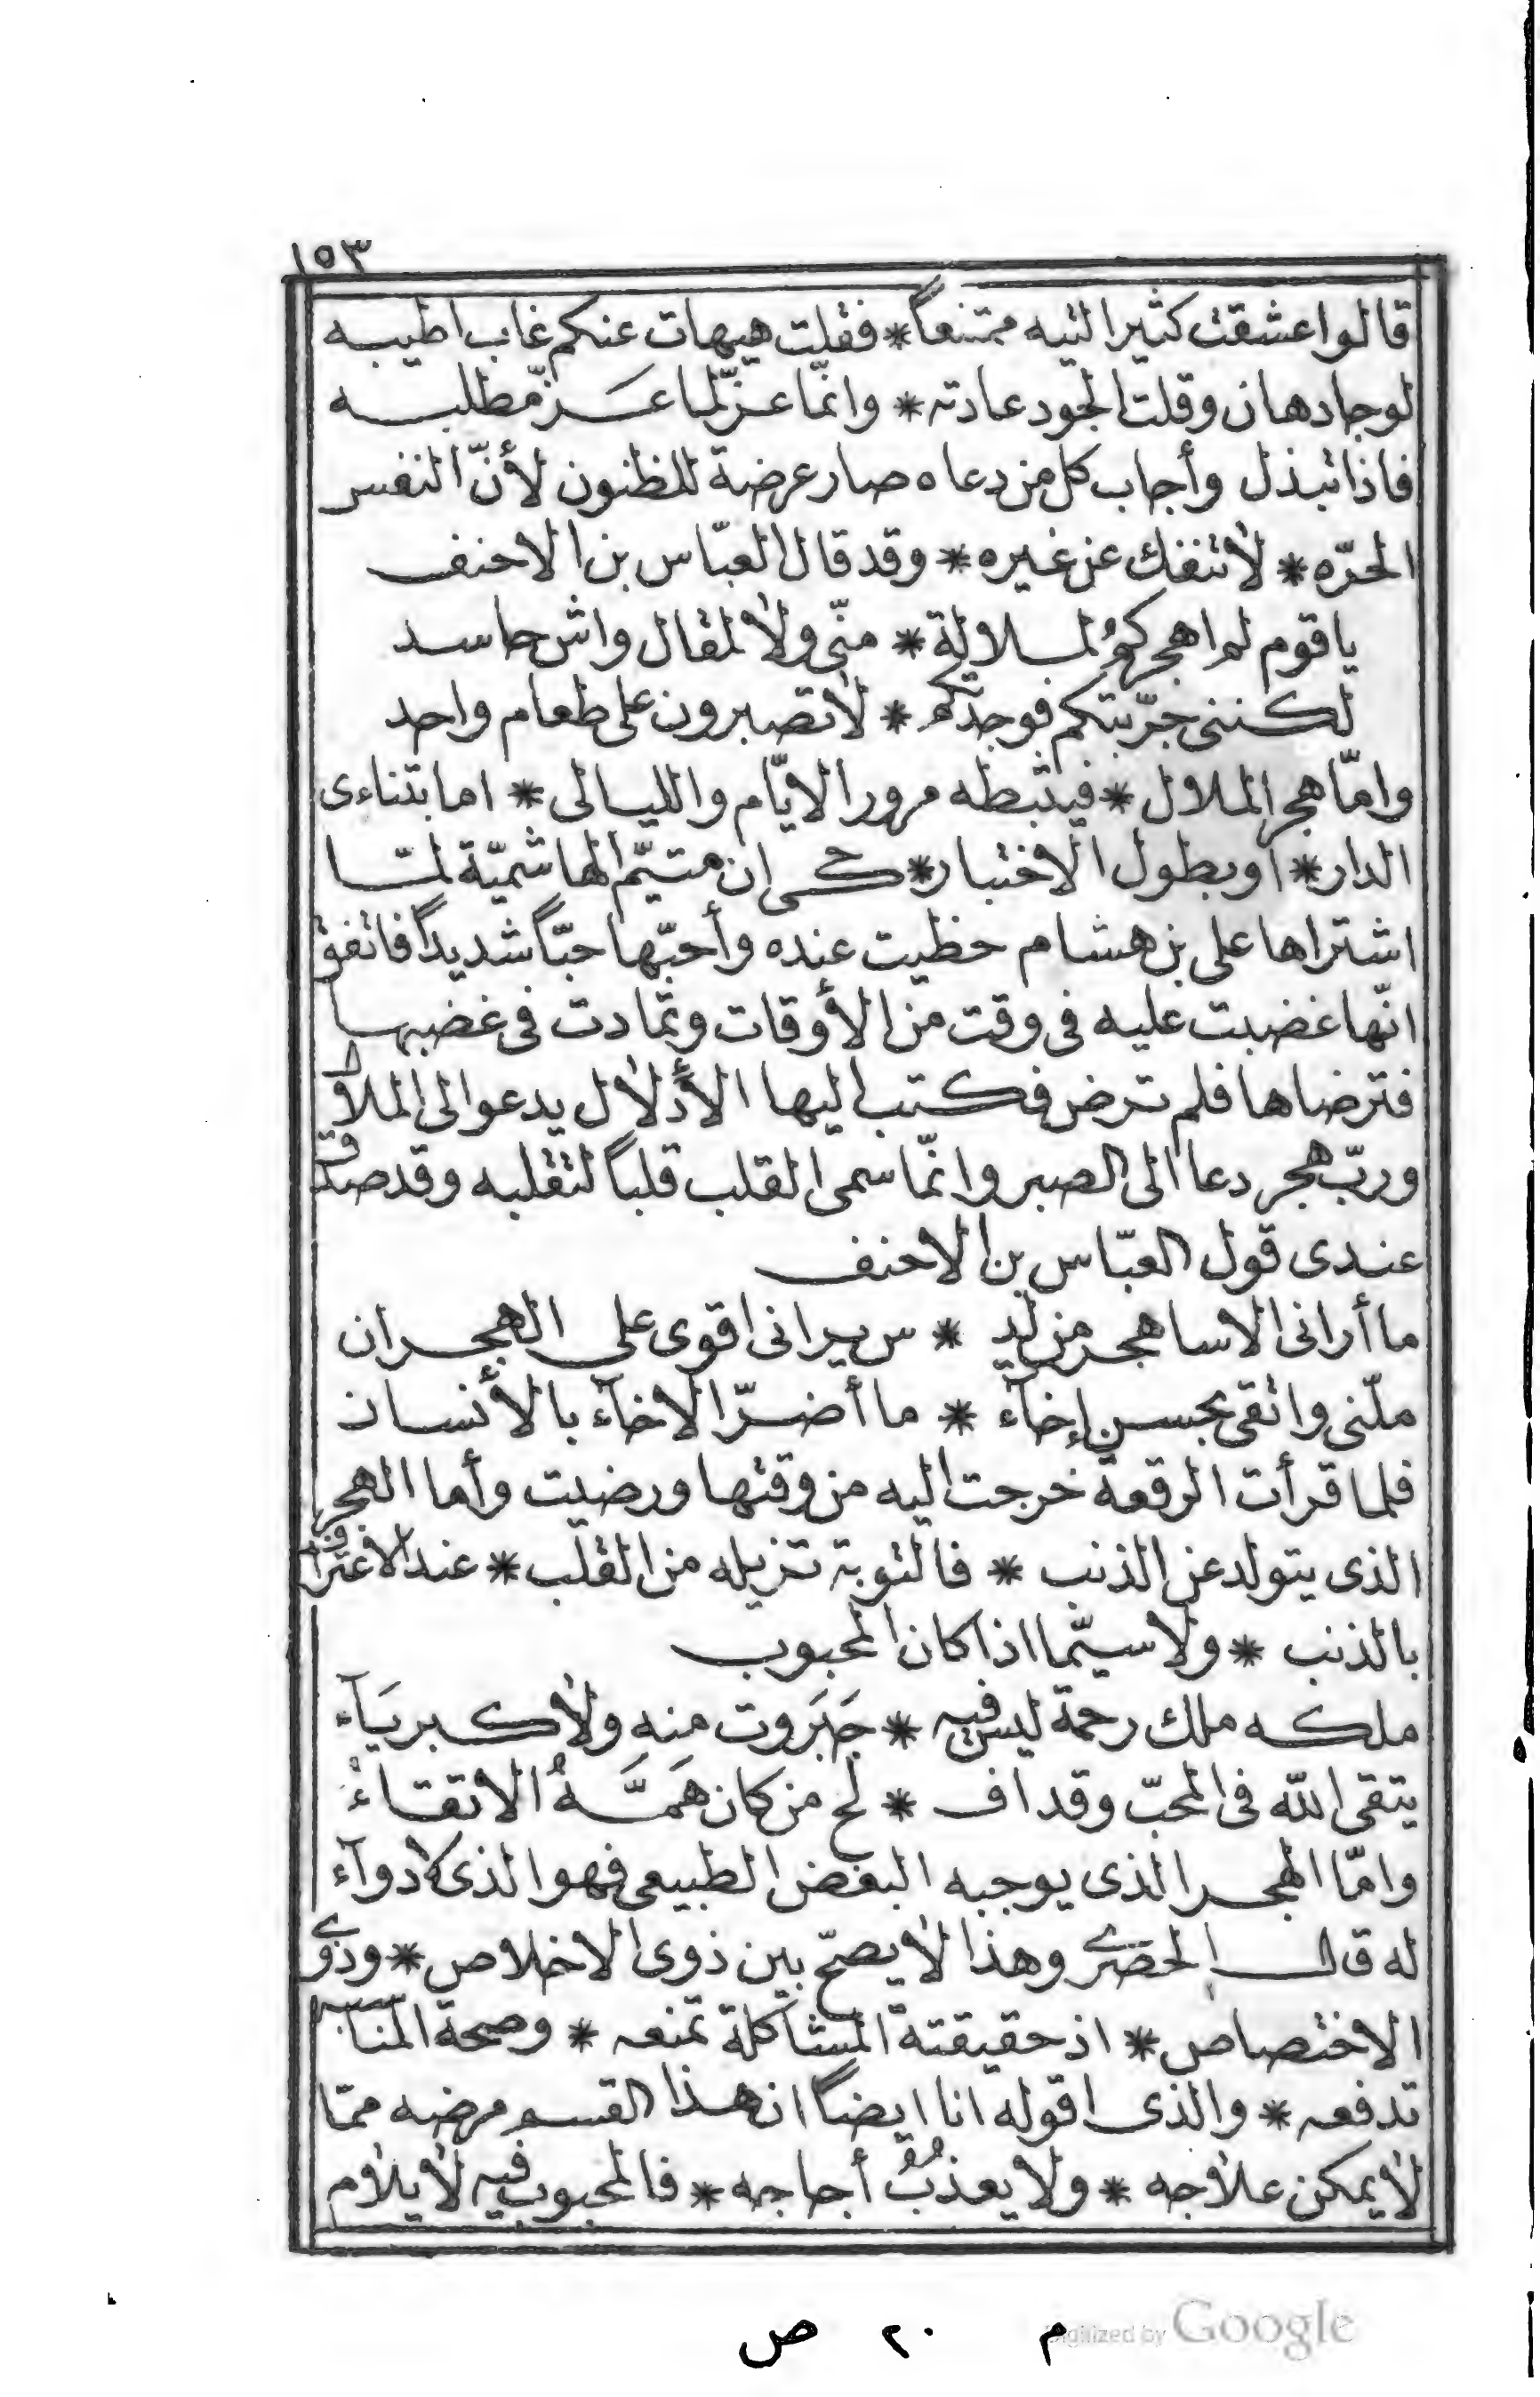 ١٥٣
قالوا عشقت كثير التيه ممتنعاً * فقلت هيهات عنكم غاب اطيبه
لوجاد هان وقلت الجود عادته * وانمّا عزّ لما عـــزّ مطلبـــه
فاذا تبذل وأجاب كل من دعاه صار عرضة للظنون لأنّ النفس
الحرّه * لا تنفك عن غيره * وقد قال العبّاس بن الاحنف
يا قوم لم اهجركمُ لمــلالة * منّى ولا لمقال واش حاسد
لكننى جرّبتكم فوجدتكم * لا تصبرون على طعام واحد
وامّا هجر الملال * فيثبطه مرور الايّام والليــالى * اما بتناءى
الدار * او بطول الاختبار * حــكى ان متيّم الهاشميّة لمّــا
اشتراها على بن هشام حظيت عنده وأحبّها حبّاً شديداً فاتفق
انّها غضبت عليه فى وقت من الأوقات وتمادت فى غضبهــا
فترضاها فلم ترض فكتب اليها الأدلال يدعو الى الملال
وربّ هجر دعا الى الصبر وانمّا سمى القلب قلباً لتقلبه وقد صدق
عندى قول العبّاس بن الاحنف
ما أرانى الا ساهجر من ليـ * ـس يرانى اقوى على الهجــران
ملّنى واثقى بحسن إخآء * ما أضــرّ الاخآء بالأنســان
فلما قرأت الرقعة خرجت اليه من وقتها ورضيت وأما الهجر
الذى يتولد عن الذنب * فالتوبة تزيله من القلب * عند الاعتراف
بالذنب * ولا سيّما اذا كان المحبوب
ملكه ملك رحمة ليس فيه * جَبَروت منه ولا كــبريَـآء
يتقى الله فى المحبّ وقد اف * لح من كان هَمَّــهُ الاتقــاءُ
وامّا الهجــر الذى يوجبه البغض الطبيعى فهو الذى لا دوآء
له قالــ الحضرى وهذا لا يصحّ بين ذوى الاخلاص * وذوى
الاختصاص * اذ حقيقتة المشاكلة تمنعه * وصحة المناسبة
تدفعه * والذى اقوله انا ايضاً ان هــذا القسم مرضه ممّا
لا يمكن علاجه * ولا يعذبُ أجاجه * فالمحبوب فيه لا يلام
م ٢٠ ص
Digitized by Google